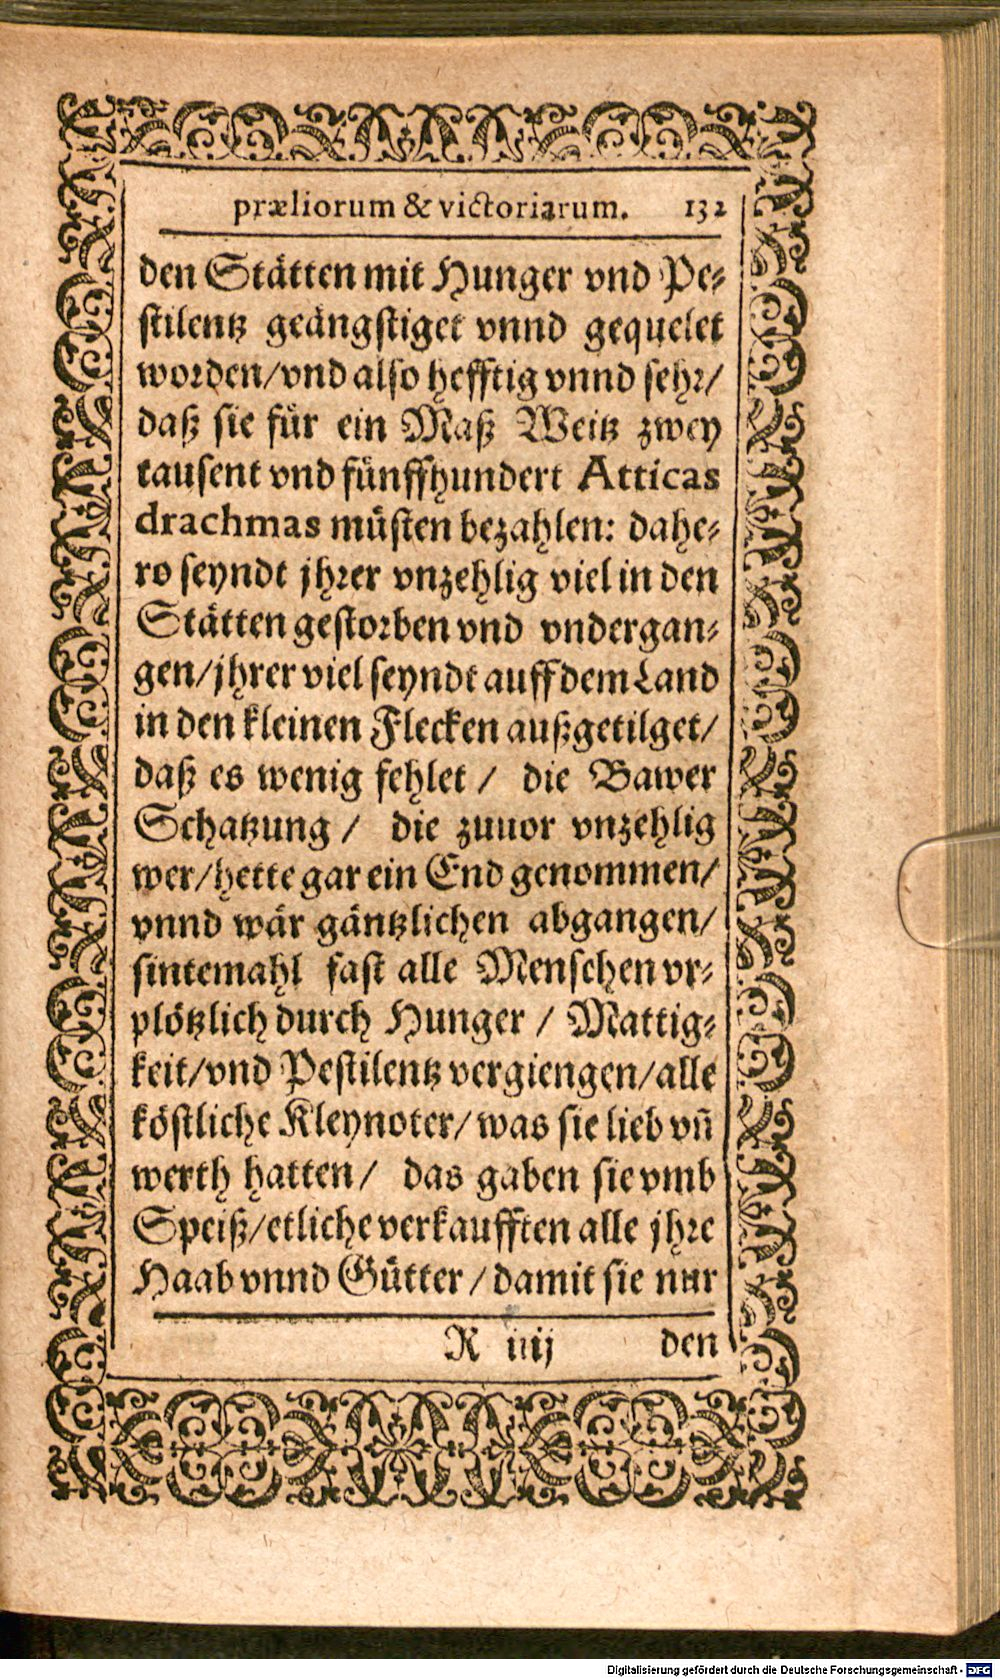 præliorum & victoriarum. 132
den Stätten mit Hunger vnd Pe-
stilentz geängstiget vnnd gequelet
worden/vnd also hefftig vnnd sehr/
daß sie für ein Maß Weitz zwey
tausent vnd fünffhundert Atticas
drachmas müsten bezahlen: dahe-
ro seyndt jhrer vnzehlig viel in den
Stätten gestorben vnd vndergan-
gen/jhrer viel seyndt auff dem Land
in den kleinen Flecken außgetilget/
daß es wenig fehlet / die Bawer
Schatzung / die zuuor vnzehlig
wer/hette gar ein End genommen/
vnnd wär gäntzlichen abgangen/
sintemahl fast alle Menschen vr-
plötzlich durch Hunger / Mattig-
keit/vnd Pestilentz vergiengen/alle
köstliche Kleynoter/was sie lieb vñ
werth hatten/ das gaben sie vmb
Speiß/etliche verkaufften alle jhre
Haab vnnd Gütter /damit sie nur
R iiij den
Digitalisierung gefördert durch die Deutsche Forschungsgemeinschaft - DFG